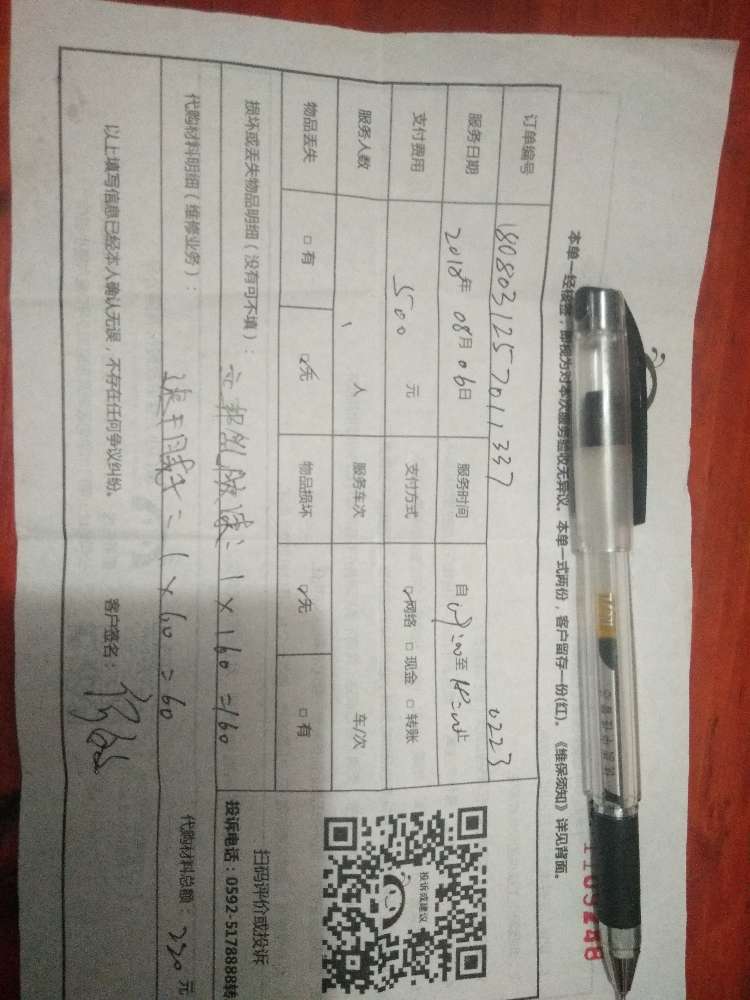 本单一经接签，即视为对本次服务验收无异议。本单一式两份，客户留存一份(红)。《维保须知》详见背面。
1109248
订单编号 180803125 0223
服务日期 2018年 08月 06日 服务时间 自 至 止
支付费用 500 元 支付方式 网络 □现金 □转账
服务人数 1 人 服务车次 车/次
物品丢失 □有 无 物品损坏 无 □有
损坏或丢失物品明细（没有可不填）：
= 1 × 160 = 160
代购材料明细（维修业务）：
= 1 × 60 = 60
代购材料总额： 元
以上填写信息已经本人确认无误，不存在任何争议纠纷。 客户签名：
投诉或建议
扫码评价或投诉
投诉电话：0592-5178888转